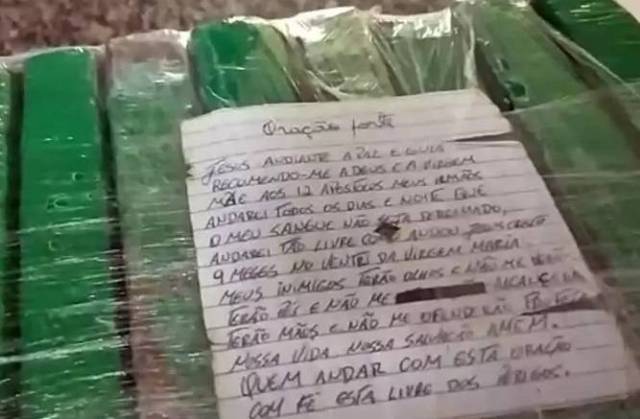 Oração forte
JESUS ADIANTE A PAZ E GUIA
RECOMENDO-ME A DEUS E A VIRGEM
MÃE AOS 12 APOSTOLOS MEUS IRMÃOS
ANDAREI TODOS OS DIAS E NOITE QUE
O MEU SANGUE NÃO SEJA DERRAMADO,
ANDAREI TÃO LIVRE COMO ANDOU JESUS CRISTO
9 MESES NO VENTRE DA VIRGEM MARIA
MEUS INIMIGOS TERÃO OLHOS E NÃO ME
TERÃO PÉS E NÃO ME
TERÃO MÃOS E NÃO ME
NOSSA VIDA NOSSA SALVAÇÃO AMEM.
QUEM ANDAR COM ESTA ORAÇÃO
COM FÉ ESTA LIVRE DOS PERIGOS.